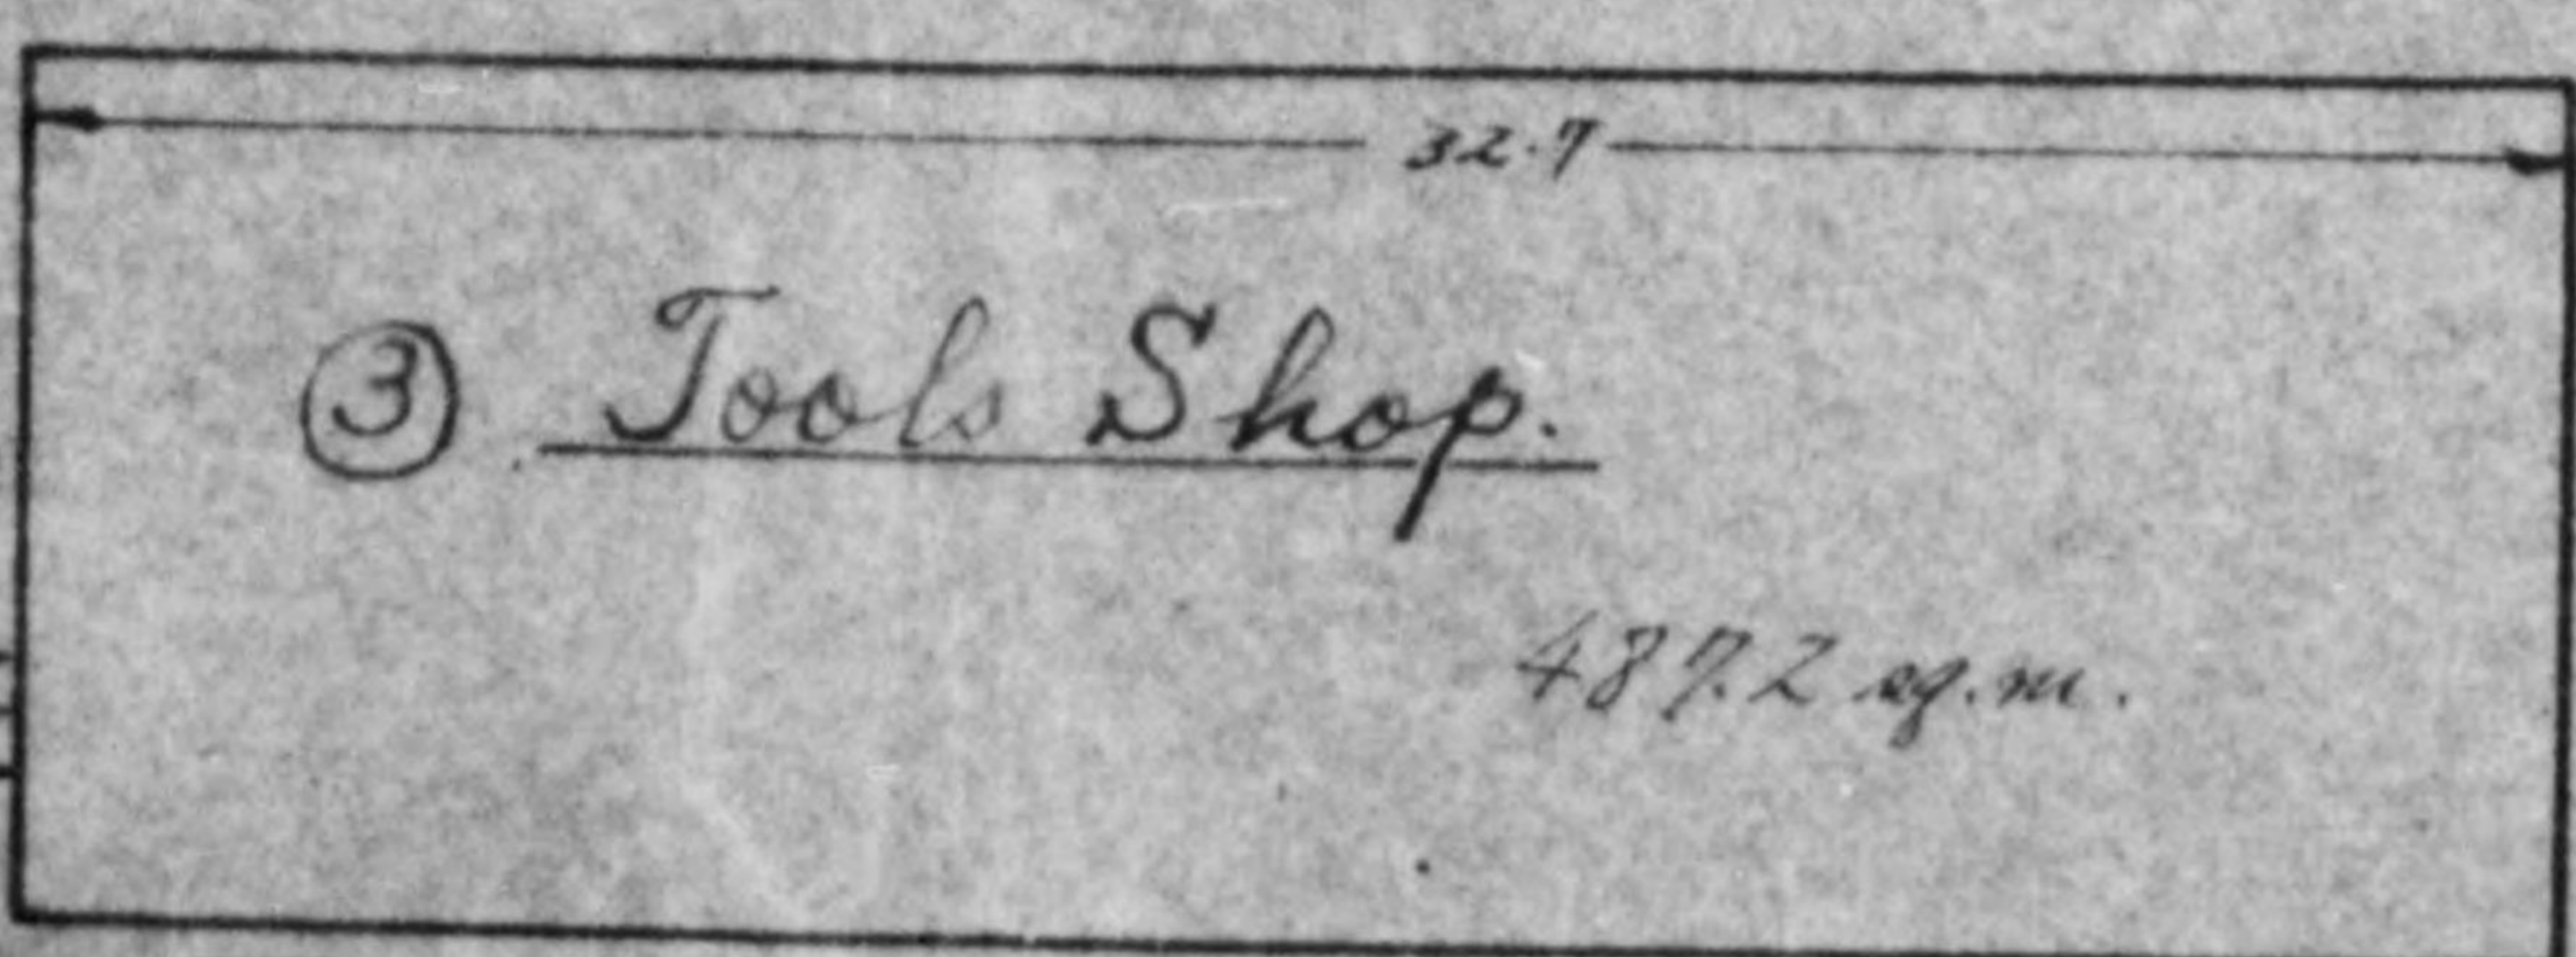 32.7
③ Tools Shop.
487.2 sq.m.